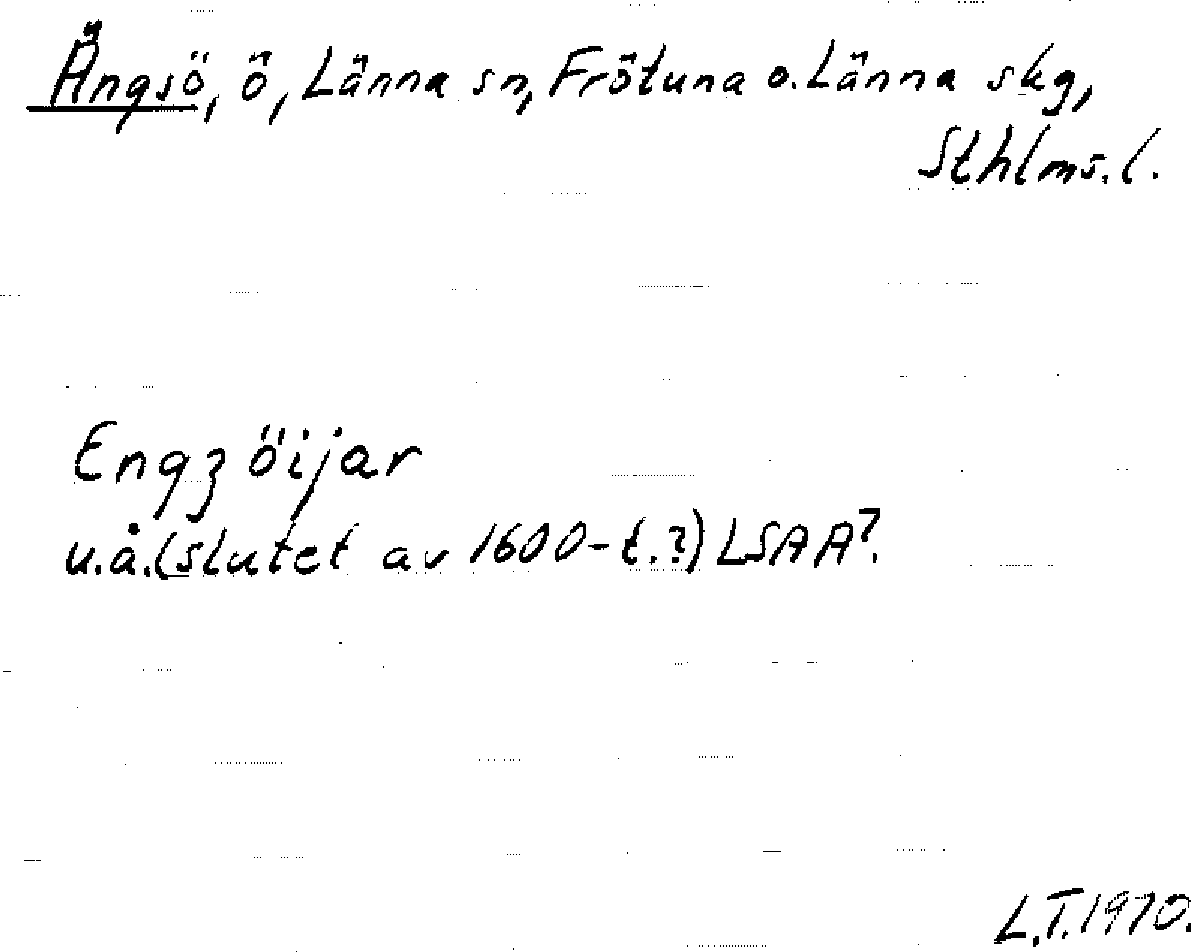 Ängsö, ö, Länna sn, Frötuna o. Länna skg,
Sthlms. l.
Engz öijar
u.å. (slutet av 1600-t.?) LSA A7.
L.T. 1970.